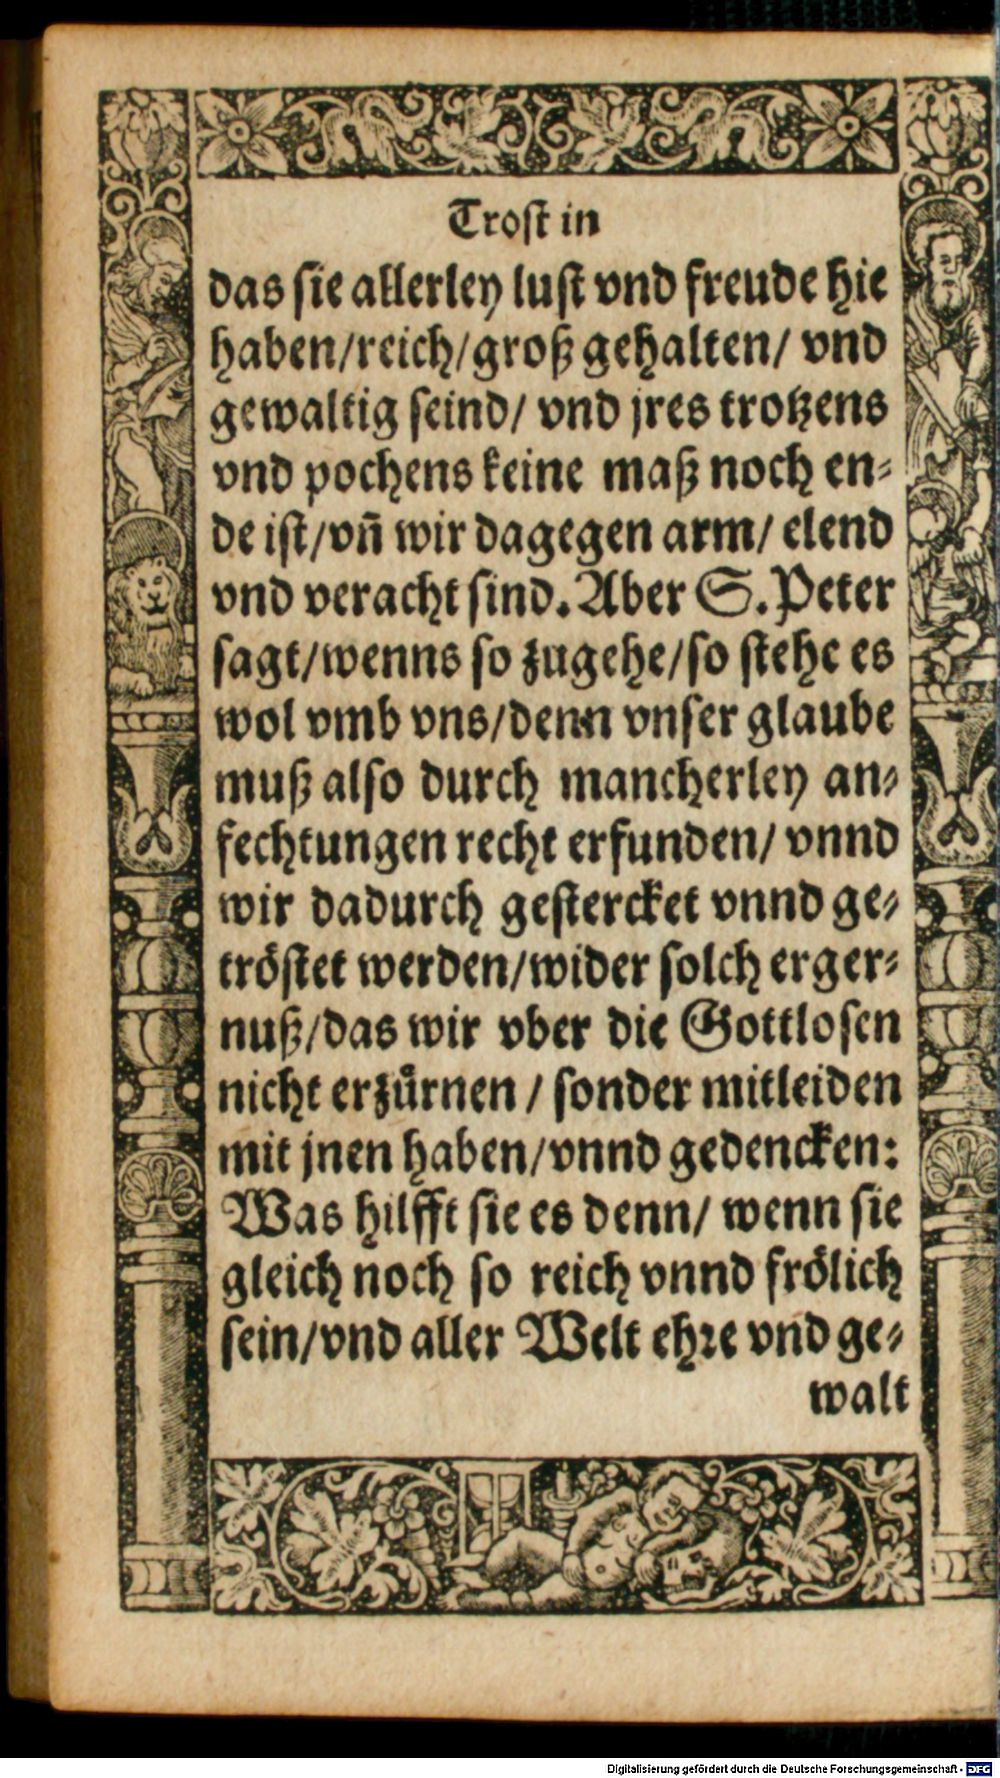 Trost in
das sie allerley lust vnd freude hie
haben/reich/groß gehalten/ vnd
gewaltig seind/ vnd jres trotzens
vnd pochens keine maß noch en-
de ist/vñ wir dagegen arm/ elend
vnd veracht sind. Aber S. Peter
sagt/wenns so zugehe/so stehe es
wol vmb vns/denn vnser glaube
muß also durch mancherley an-
fechtungen recht erfunden/ vnnd
wir dadurch gestercket vnnd ge-
tröstet werden/wider solch erger-
nuß/das wir vber die Gottlosen
nicht erzürnen / sonder mitleiden
mit jnen haben/vnnd gedencken:
Was hilfft sie es denn/ wenn sie
gleich noch so reich vnnd frölich
sein/vnd aller Welt ehre vnd ge-
walt
Digitalisierung gefördert durch die Deutsche Forschungsgemeinschaft - DFG